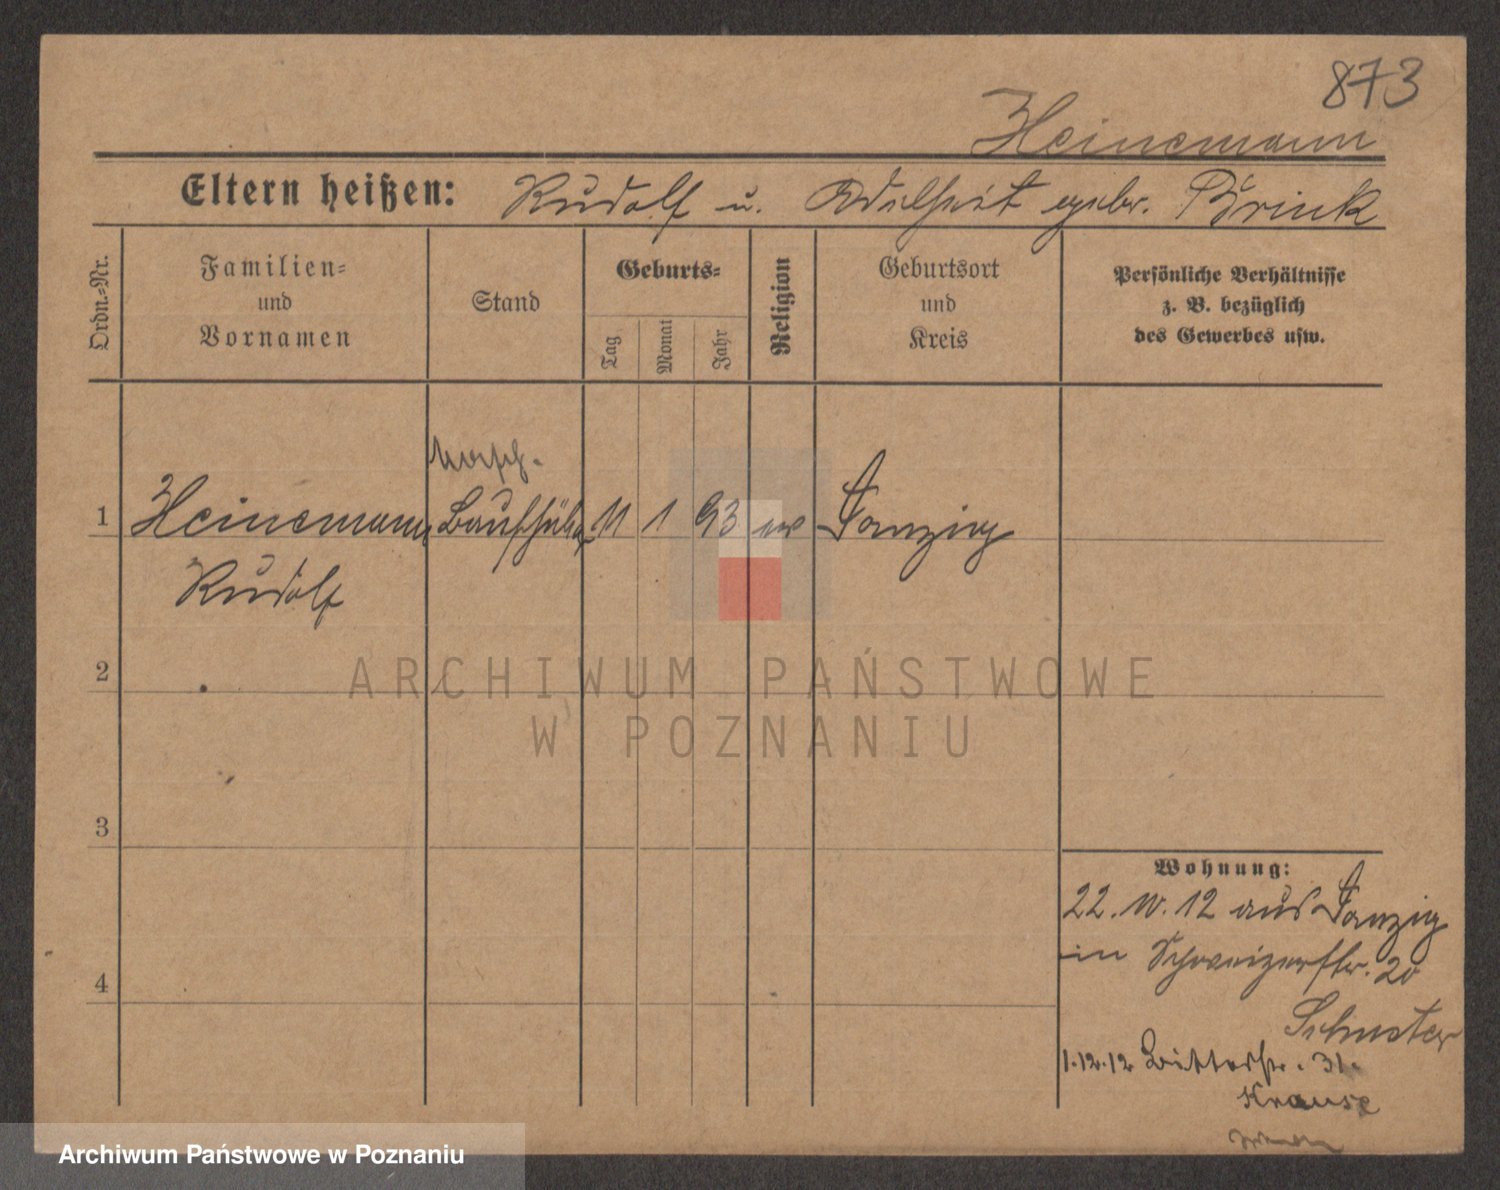 873
Heinemann
Eltern heißen: Rudolf u. Adelheit gebr. Brink
Ordn.=Nr.
Familien=
und
Vornamen
Stand
Geburts=
Tag
Monat
Jahr
Religion
Geburtsort
und
Kreis
Persönliche Verhältnisse
z. B. bezüglich
des Gewerbes usw.
1 Heinemann 11 1 93 ev Danzig
Rudolf
2
3
4
Wohnung:
22. 10. 12 aus Danzig
in Schweizerstr. 20
Schuster
1.12.12 31.
Krause
ARCHIWUM PAŃSTWOWE
W POZNANIU
Archiwum Państwowe w Poznaniu